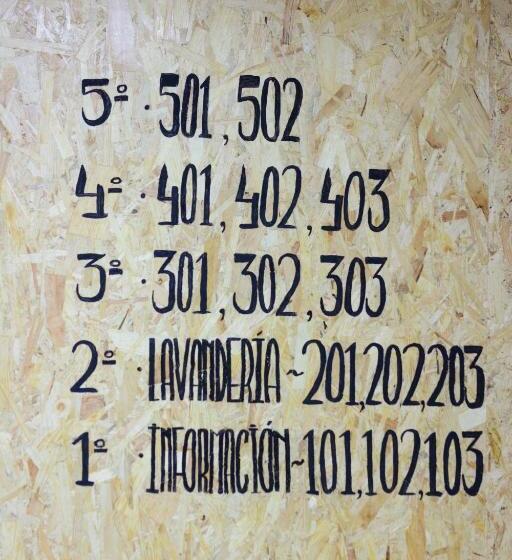 5º · 501, 502
4º · 401, 402, 403
3º · 301, 302, 303
2º · LAVANDERÍA ~ 201, 202, 203
1º · INFORMACIÓN ~ 101, 102, 103